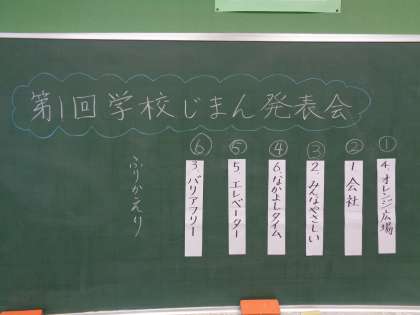 第1回学校じまん発表会
① 4.オレンジ広場
② 1.会社
③ 2.みんなやさしい
④ 6.なかよしタイム
⑤ 5.エレベーター
⑥ 3.バリアフリー
ふりかえり